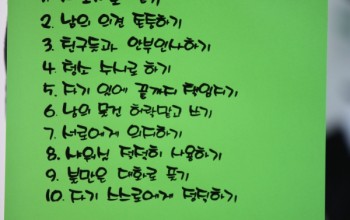 2. 남의 의견 존중하기
3. 친구들과 안부인사하기
4. 청소 수시로 하기
5. 자기 일에 끝까지 책임지기
6. 남의 물건 허락맡고 쓰기
7. 서로에게 의지하기
8. 샤워실 청결히 사용하기
9. 불만은 대화로 풀기
10. 자기 스스로에게 당당하기